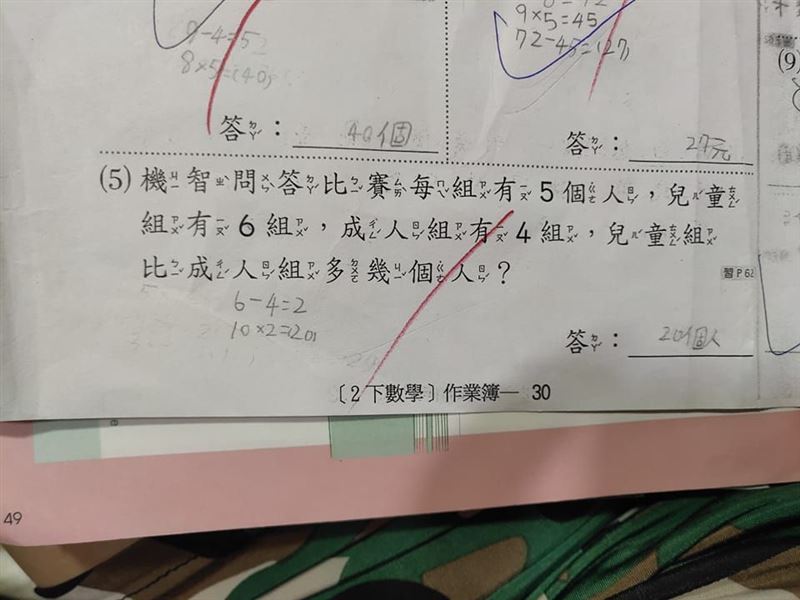 9-4=5
8×5=(40)
答：40個
9×5=45
72-45=(27)
答：27元
(9)
(5) 機智問答比賽每組有5個人，兒童
組有6組，成人組有4組，兒童組
比成人組多幾個人？
習P62
6-4=2
10×2=(20)
答：20個人
〔2下數學〕作業簿— 30
49